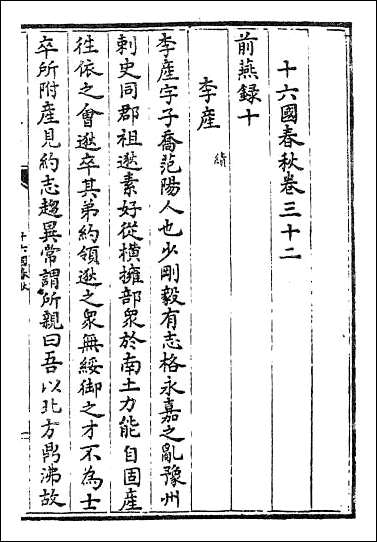 十六國春秋卷三十二
前燕録十
李産 績
李産字子喬范陽人也少剛毅有志格永嘉之亂豫州
刺史同郡祖逖素好從横擁部衆於南土力能自固産
往依之會逖卒其弟約領逖之衆無綏御之才不為士
卒所附産見約志趨異常謂所親曰吾以北方鼎沸故
十六國春秋